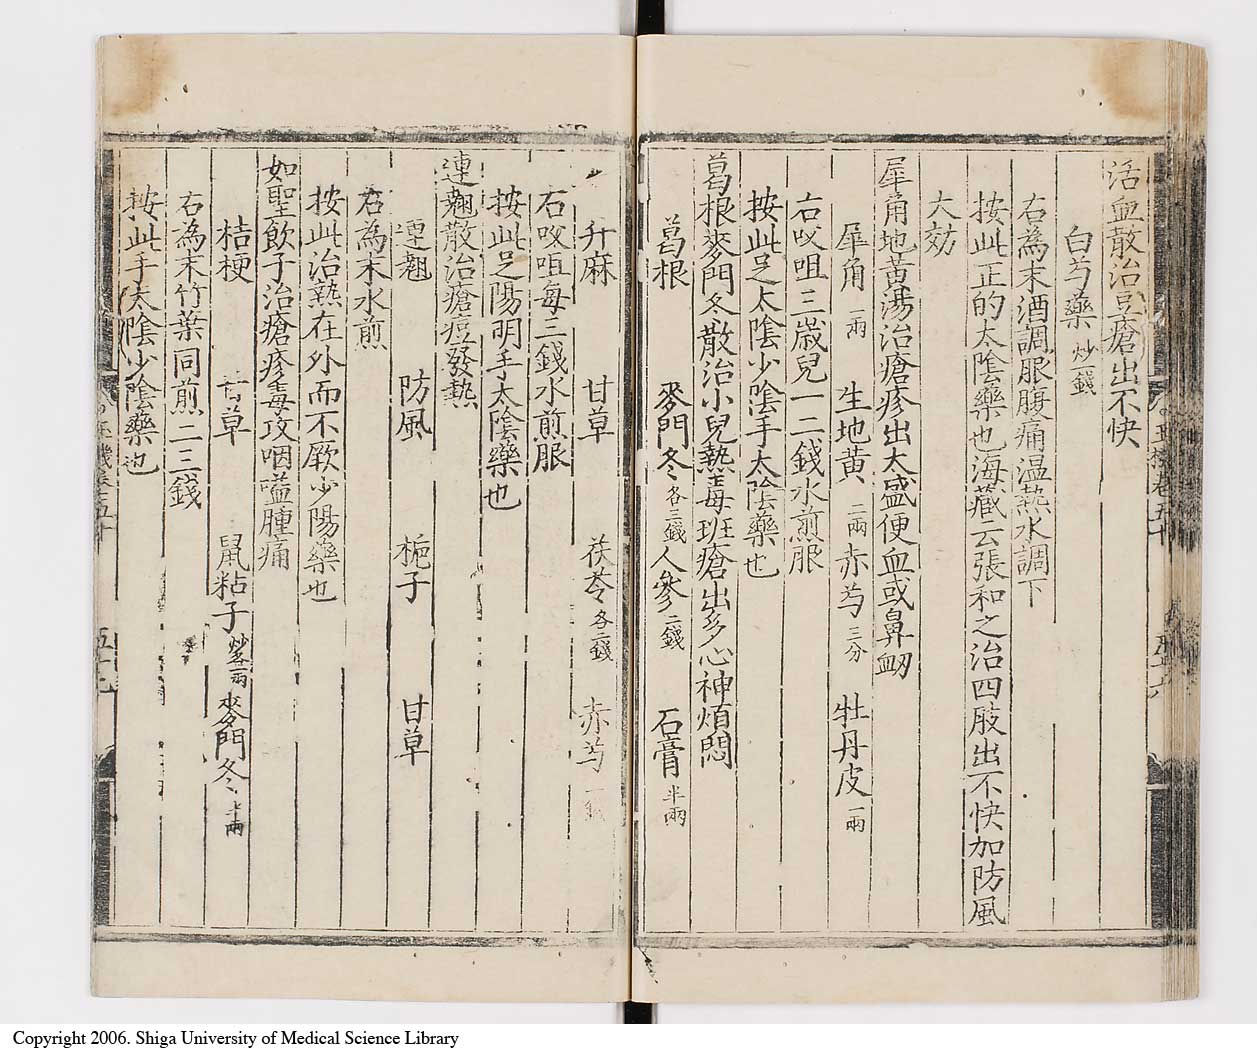 活血散治豆瘡出不快
白芍藥 炒一錢
右為末酒調服腹痛温熱水調下
按此正的太陰藥也海藏云張和之治四肢出不快加防風
大効
犀角地黃湯治瘡疹出太盛便血或鼻衂
犀角 一兩 生地黃 二兩 赤芍 三分 牡丹皮 一兩
右㕮咀三歲兒一二錢水煎服
按此足太陰少陰手太陰藥也
葛根麥門冬散治小兒熱毒斑瘡出多心神煩悶
葛根 麥門冬 各三錢 人參 二錢 石膏 半兩
升麻 甘草 茯苓 各二錢 赤芍 一錢
右㕮咀每三錢水煎服
按此足陽明手太陰藥也
連翹散治瘡痘發熱
連翹 防風 梔子 甘草
右為末水煎
按此治熱在外而不厥少陽藥也
如聖飲子治瘡疹毒攻咽嗌腫痛
桔梗 甘草 鼠粘子 炒各一兩 麥門冬 半兩
右為末竹葉同煎二三錢
按此手太陰少陰藥也
Copyright 2006. Shiga University of Medical Science Library